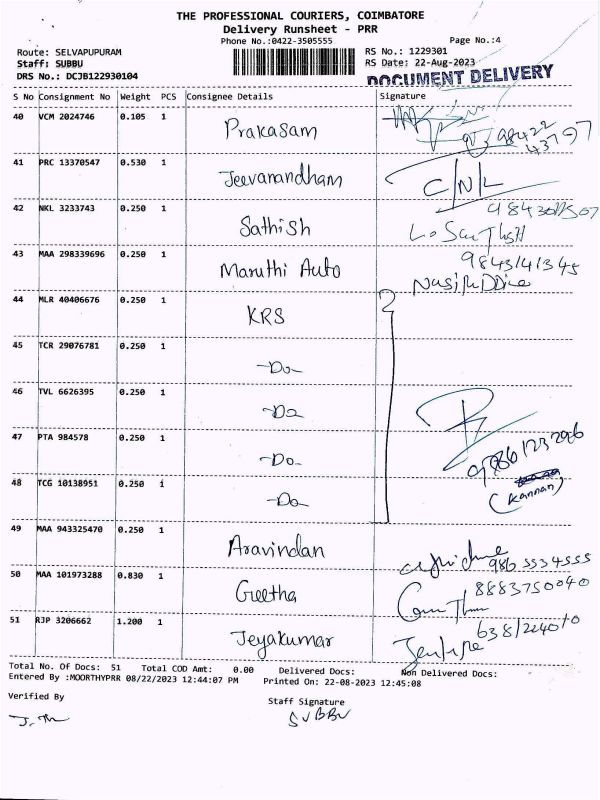 THE PROFESSIONAL COURIERS, COIMBATORE
Delivery Runsheet - PRR
Phone No.:0422-3505555 Page No.:4
Route: SELVAPUPURAM RS No.: 1229301
Staff: SUBBU RS Date: 22-Aug-2023
DRS No.: DCJB122930104 DOCUMENT DELIVERY
S No Consignment No Weight PCS Consignee Details Signature
40 VCM 2024746 0.105 1 Prakasam 98422
43797
41 PRC 13370547 0.530 1 Jeevanandham C/N/L
42 NKL 3233743 0.250 1 Sathish
43 MAA 298339696 0.250 1 Maruthi Auto 9843141345
44 MLR 40406676 0.250 1 KRS
45 TCR 29076781 0.250 1 -Do-
46 TVL 6626395 0.250 1 -Do
47 PTA 984578 0.250 1 -Do-
48 TCG 10138951 0.250 1 -Do- (Kannan)
49 MAA 943325470 0.250 1 Aravindan 9865534555
50 MAA 101973288 0.830 1 Geetha 8883750040
51 RJP 3206662 1.200 1 Jeyakumar
Total No. Of Docs: 51 Total COD Amt: 0.00 Delivered Docs: Non Delivered Docs:
Entered By :MOORTHYPRR 08/22/2023 12:44:07 PM Printed On: 22-08-2023 12:45:08
Verified By Staff Signature
SUBBU